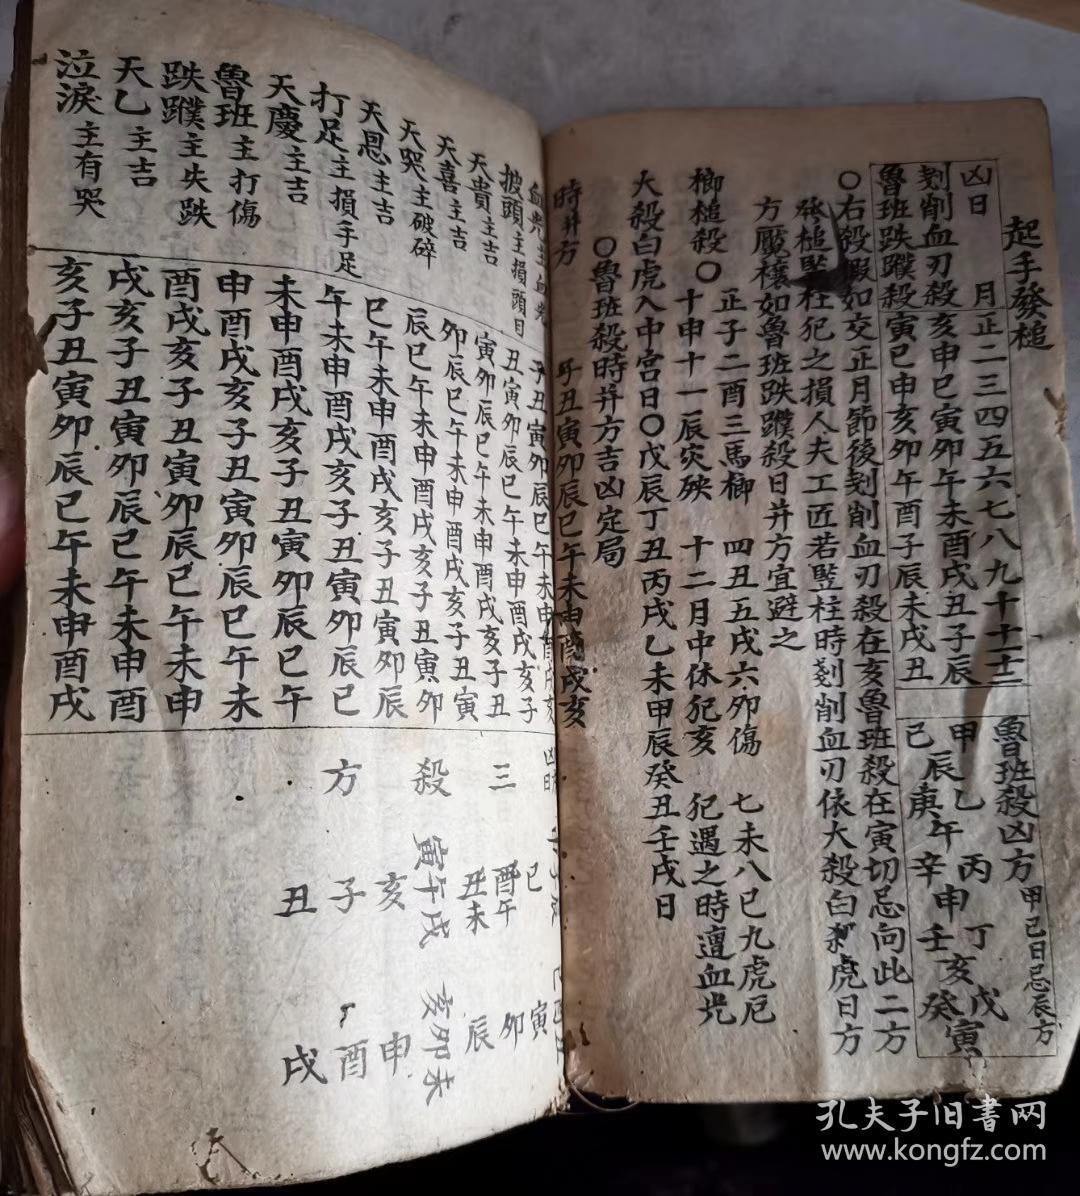 起手發槌
凶日 月正二三四五六七八九十十一十二
剗削血刃殺亥申巳寅卯午未酉戌丑子辰
魯班跌蹼殺寅巳申亥卯午酉子辰未戌丑
魯班殺凶方 甲己日忌辰方
甲乙丙丁戊
己庚辛壬癸
辰午申亥寅
〇右殺假如交正月節後剗削血刃殺在亥魯班殺在寅切忌向此二方
槌竪柱犯之損人夫工匠若竪柱時剗削血刃依大殺白虎日方
方魘禳如魯班跌蹼殺日并方宜避之
正子二酉三馬櫛 四丑五戌六卯傷 七未八巳九虎厄
櫛槌殺〇
十申十一辰灾殃 十二月中休犯亥 犯遇之時遭血光
大殺白虎入中宮日〇戊辰丁丑丙戌乙未甲辰癸丑壬戌日
〇魯班殺時并方吉凶定局
時并方 子丑寅卯辰巳午未申酉戌亥
血光主血光 子丑寅卯辰巳午未申酉戌亥
披頭主損頭目 丑寅卯辰巳午未申酉戌亥子
天貴主吉 寅卯辰巳午未申酉戌亥子丑
天喜主吉 卯辰巳午未申酉戌亥子丑寅
天哭主破碎 辰巳午未申酉戌亥子丑寅卯
天恩主吉 巳午未申酉戌亥子丑寅卯辰
打足主損手足 午未申酉戌亥子丑寅卯辰巳
天慶主吉 未申酉戌亥子丑寅卯辰巳午
魯班主打傷 申酉戌亥子丑寅卯辰巳午未
跌蹼主失跌 酉戌亥子丑寅卯辰巳午未申
天乙主吉 戌亥子丑寅卯辰巳午未申酉
泣淚主有哭 亥子丑寅卯辰巳午未申酉戌
三殺方
巳 寅
酉午 卯
丑未 辰
寅午戌 亥卯未
亥 申
子 酉
丑 戌
孔夫子旧書网
www.kongfz.com